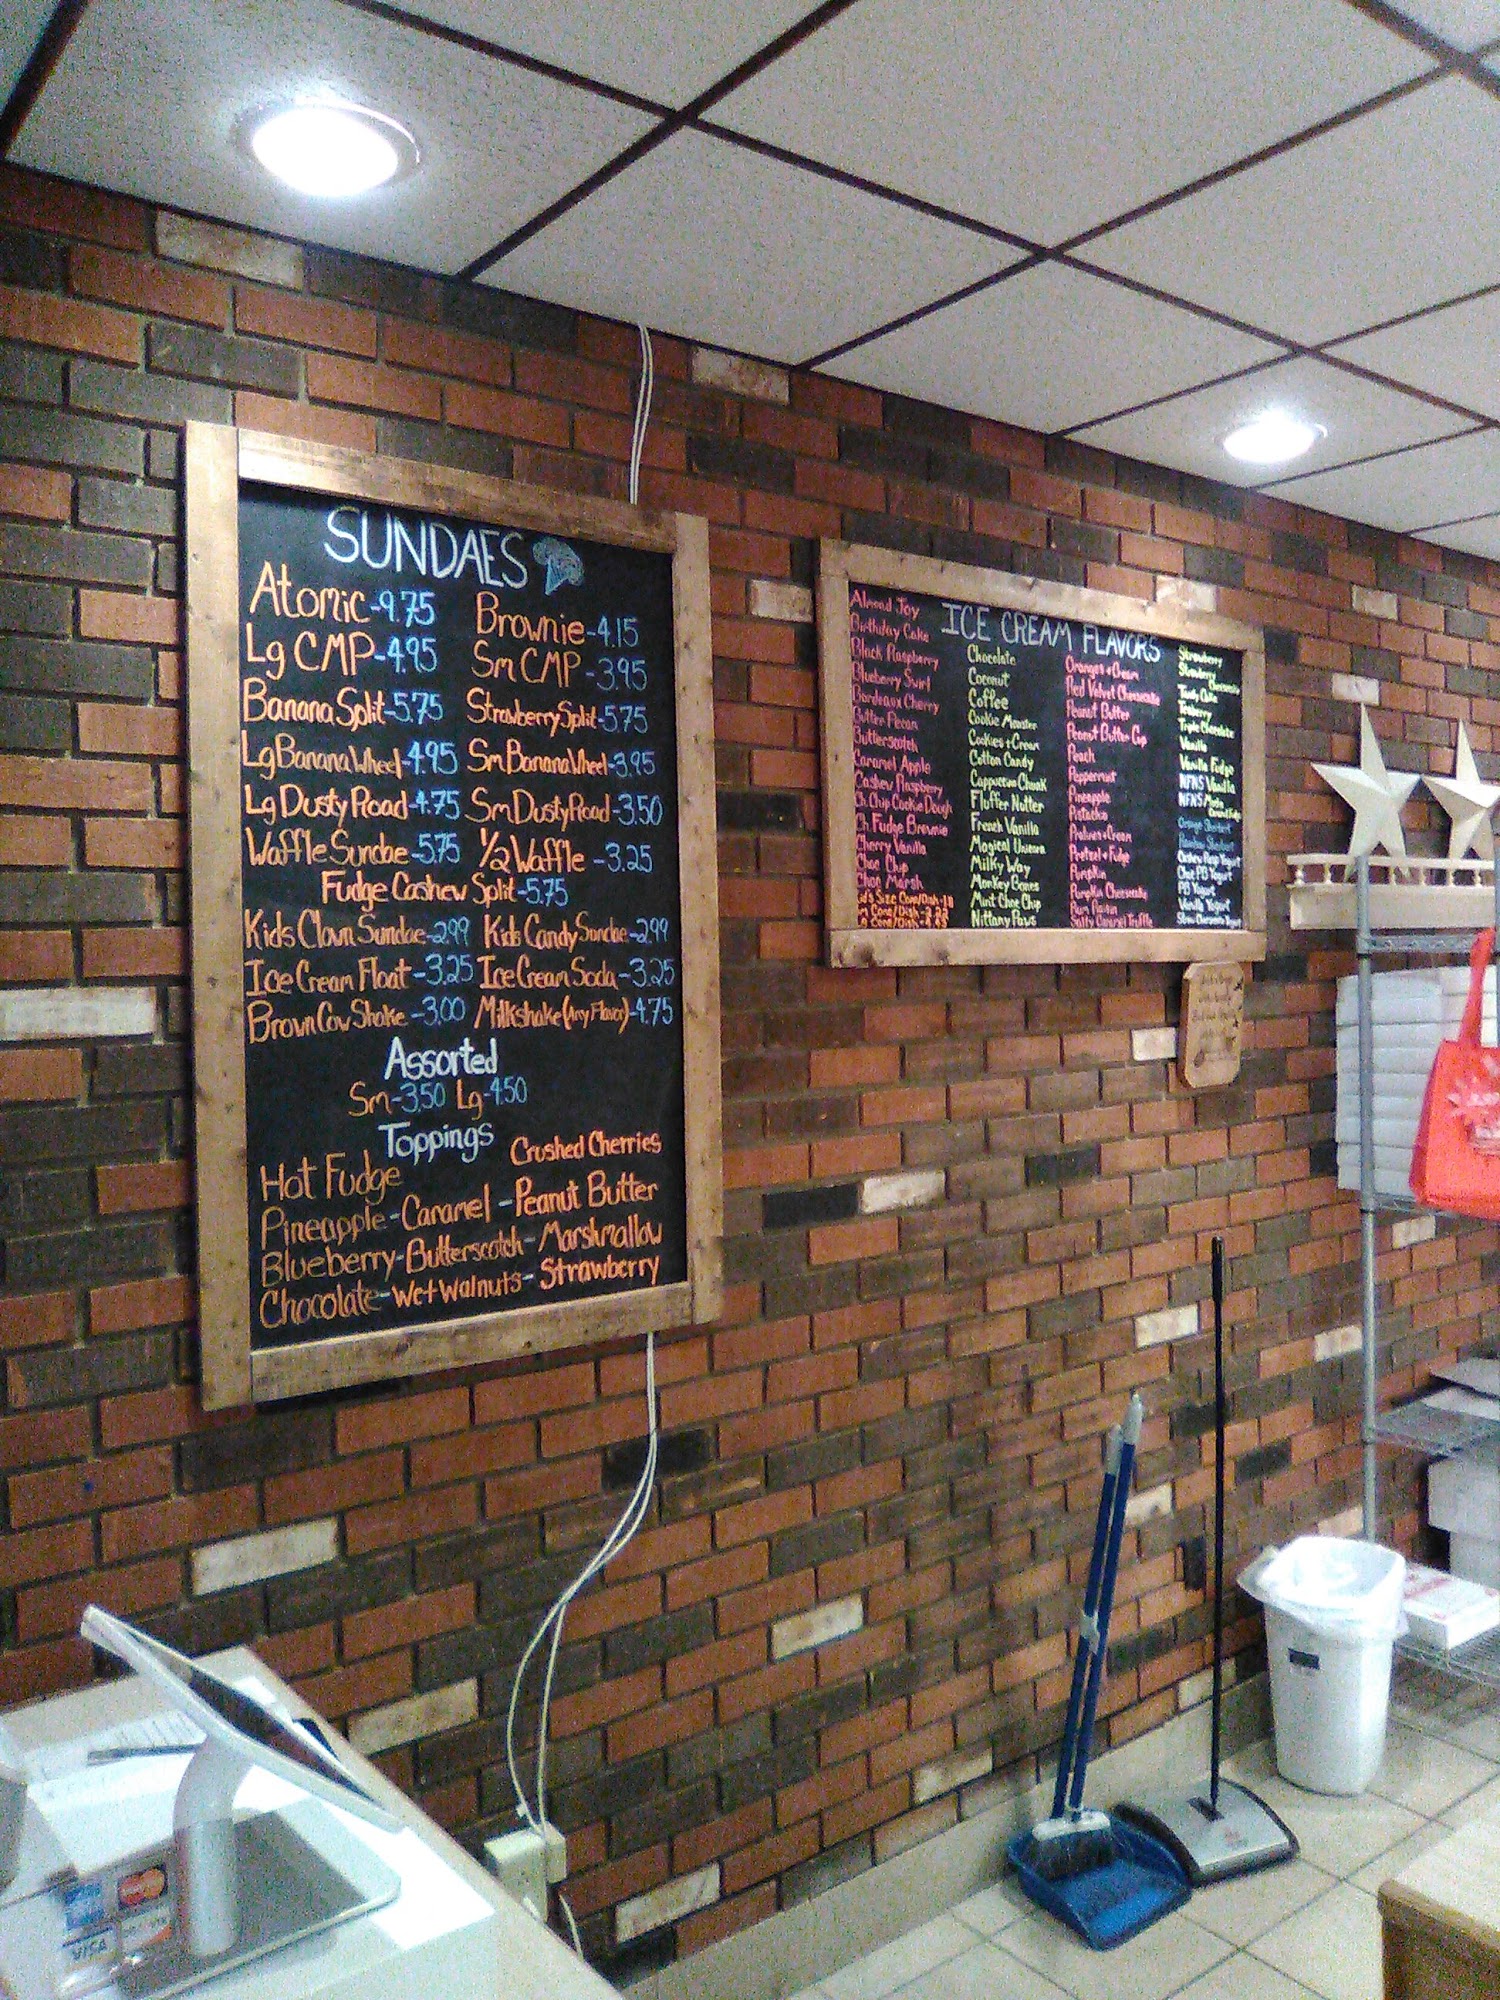 SUNDAES
Atomic-9.75 Brownie-4.15
Lg CMP-4.95 Sm CMP-3.95
Banana Split-5.75 Strawberry Split-5.75
Lg Banana Wheel-4.95 Sm Banana Wheel-3.95
Lg Dusty Road-4.75 Sm Dusty Road-3.50
Waffle Sundae-5.75 1/2 Waffle-3.25
Fudge Cashew Split-5.75
Kids Clown Sundae-2.99 Kids Candy Sundae-2.99
Ice Cream Float-3.25 Ice Cream Soda-3.25
Brown Cow Shake-3.00 Milkshake (Any Flavor)-4.75
Assorted
Sm-3.50 Lg-4.50
Toppings
Crushed Cherries
Hot Fudge
Pineapple-Caramel-Peanut Butter
Blueberry-Butterscotch-Marshmallow
Chocolate-Wet Walnuts-Strawberry
ICE CREAM FLAVORS
Almond Joy
Birthday Cake
Black Raspberry
Blueberry Swirl
Bordeaux Cherry
Butter Pecan
Butterscotch
Caramel Apple
Cashew Raspberry
Ch. Chip Cookie Dough
Ch. Fudge Brownie
Cherry Vanilla
Choc Chip
Choc Marsh
Chocolate
Coconut
Coffee
Cookie Monster
Cookies + Cream
Cotton Candy
Cappuccino Chunk
Fluffer Nutter
French Vanilla
Magical Unicorn
Milky Way
Monkey Bones
Mint Choc Chip
Nittany Paws
Oranges + Cream
Red Velvet Cheesecake
Peanut Butter
Peanut Butter Cup
Peach
Peppermint
Pineapple
Pistachio
Pralines + Cream
Pretzel + Fudge
Pumpkin
Pumpkin Cheesecake
Rum Raisin
Salty Caramel Truffle
Strawberry
Strawberry Cheesecake
Teaberry
Triple Chocolate
Vanilla
Vanilla Fudge
NFNS Vanilla
NFNS
Orange Sherbert
Rainbow Sherbert
Cashew Rasp Yogurt
Choc PB Yogurt
PB Yogurt
Vanilla Yogurt
VISA